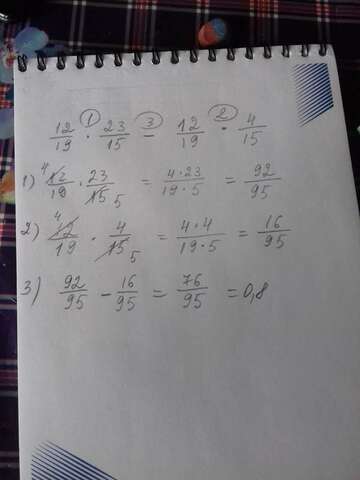 ① ③ ②
12/19 · 23/15 − 12/19 · 4/15
1) 4 12/19 · 23/15 5 = 4·23/19·5 = 92/95
2) 4 12/19 · 4/15 5 = 4·4/19·5 = 16/95
3) 92/95 − 16/95 = 76/95 = 0,8